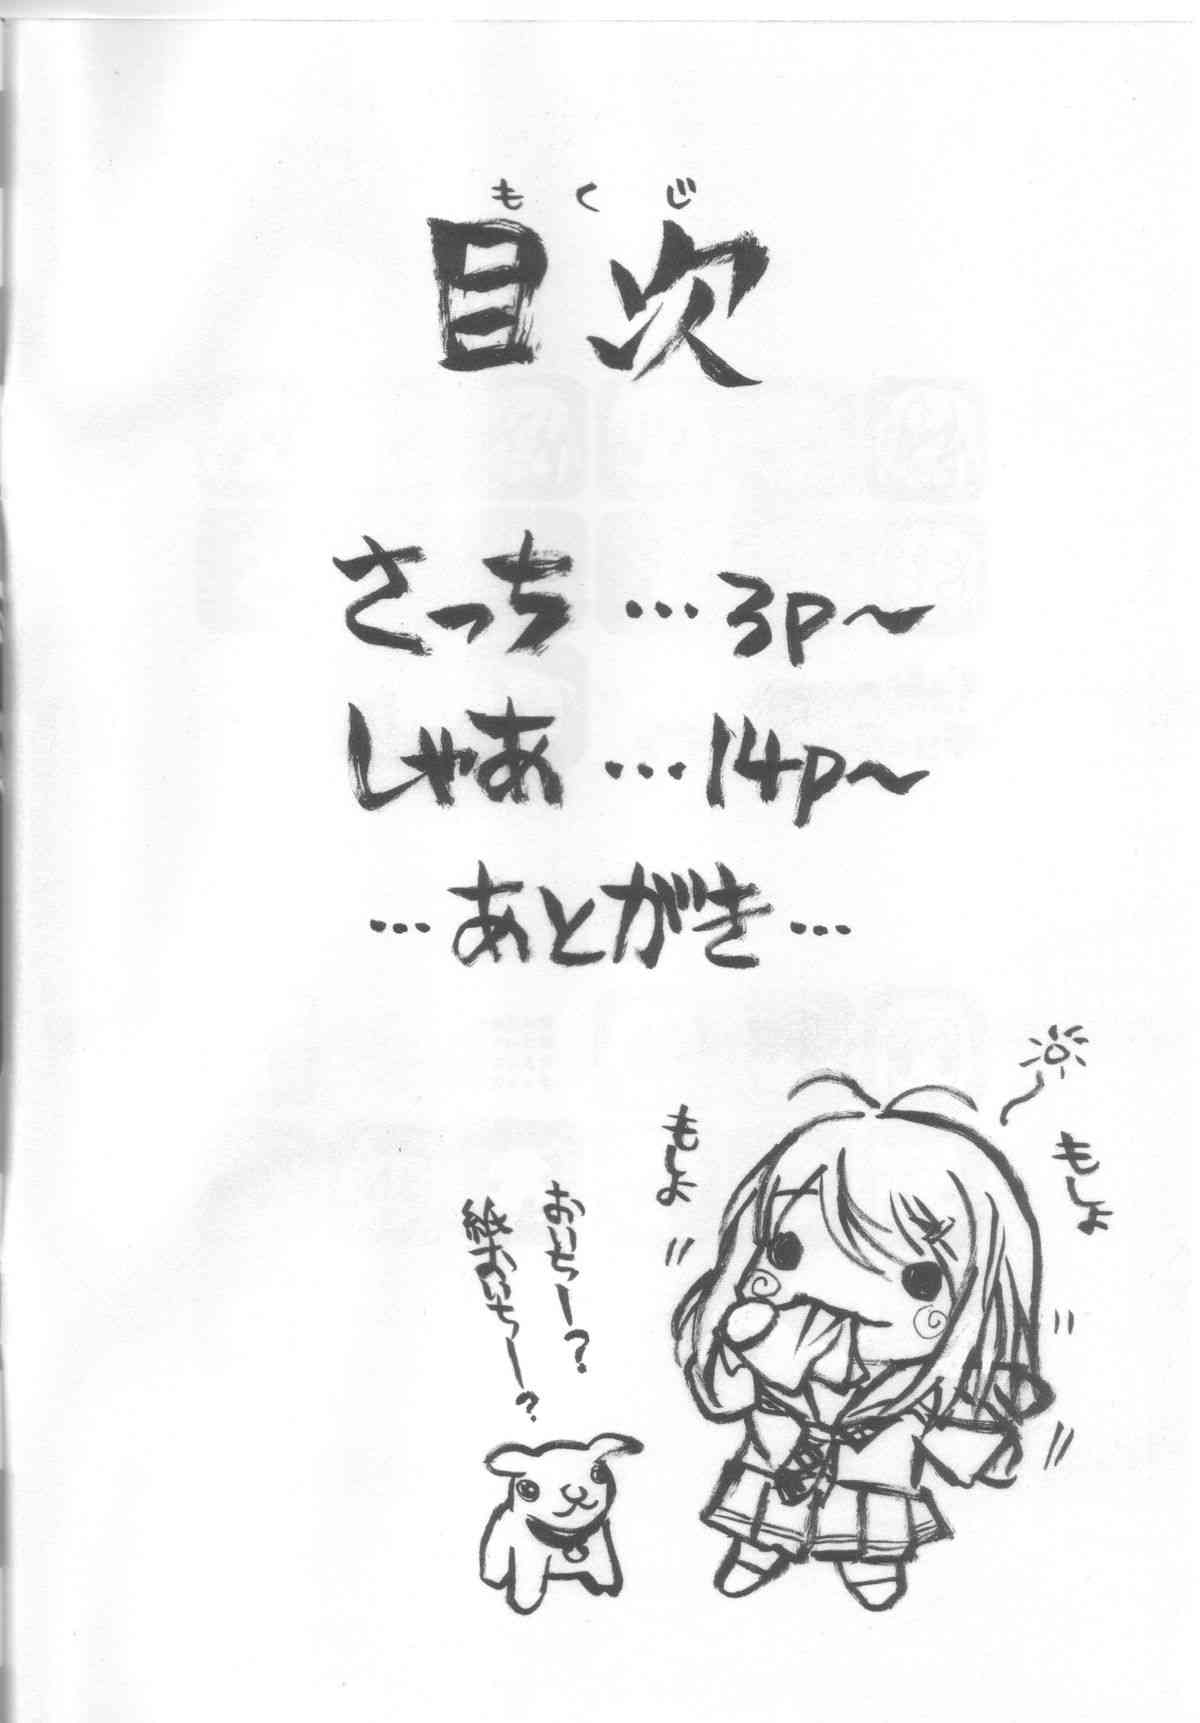 もくじ
目次
さっち …3p～
しゃあ …14p～
…あとがき…
もしょ
もしょ
おいちー?
紙おいちー?